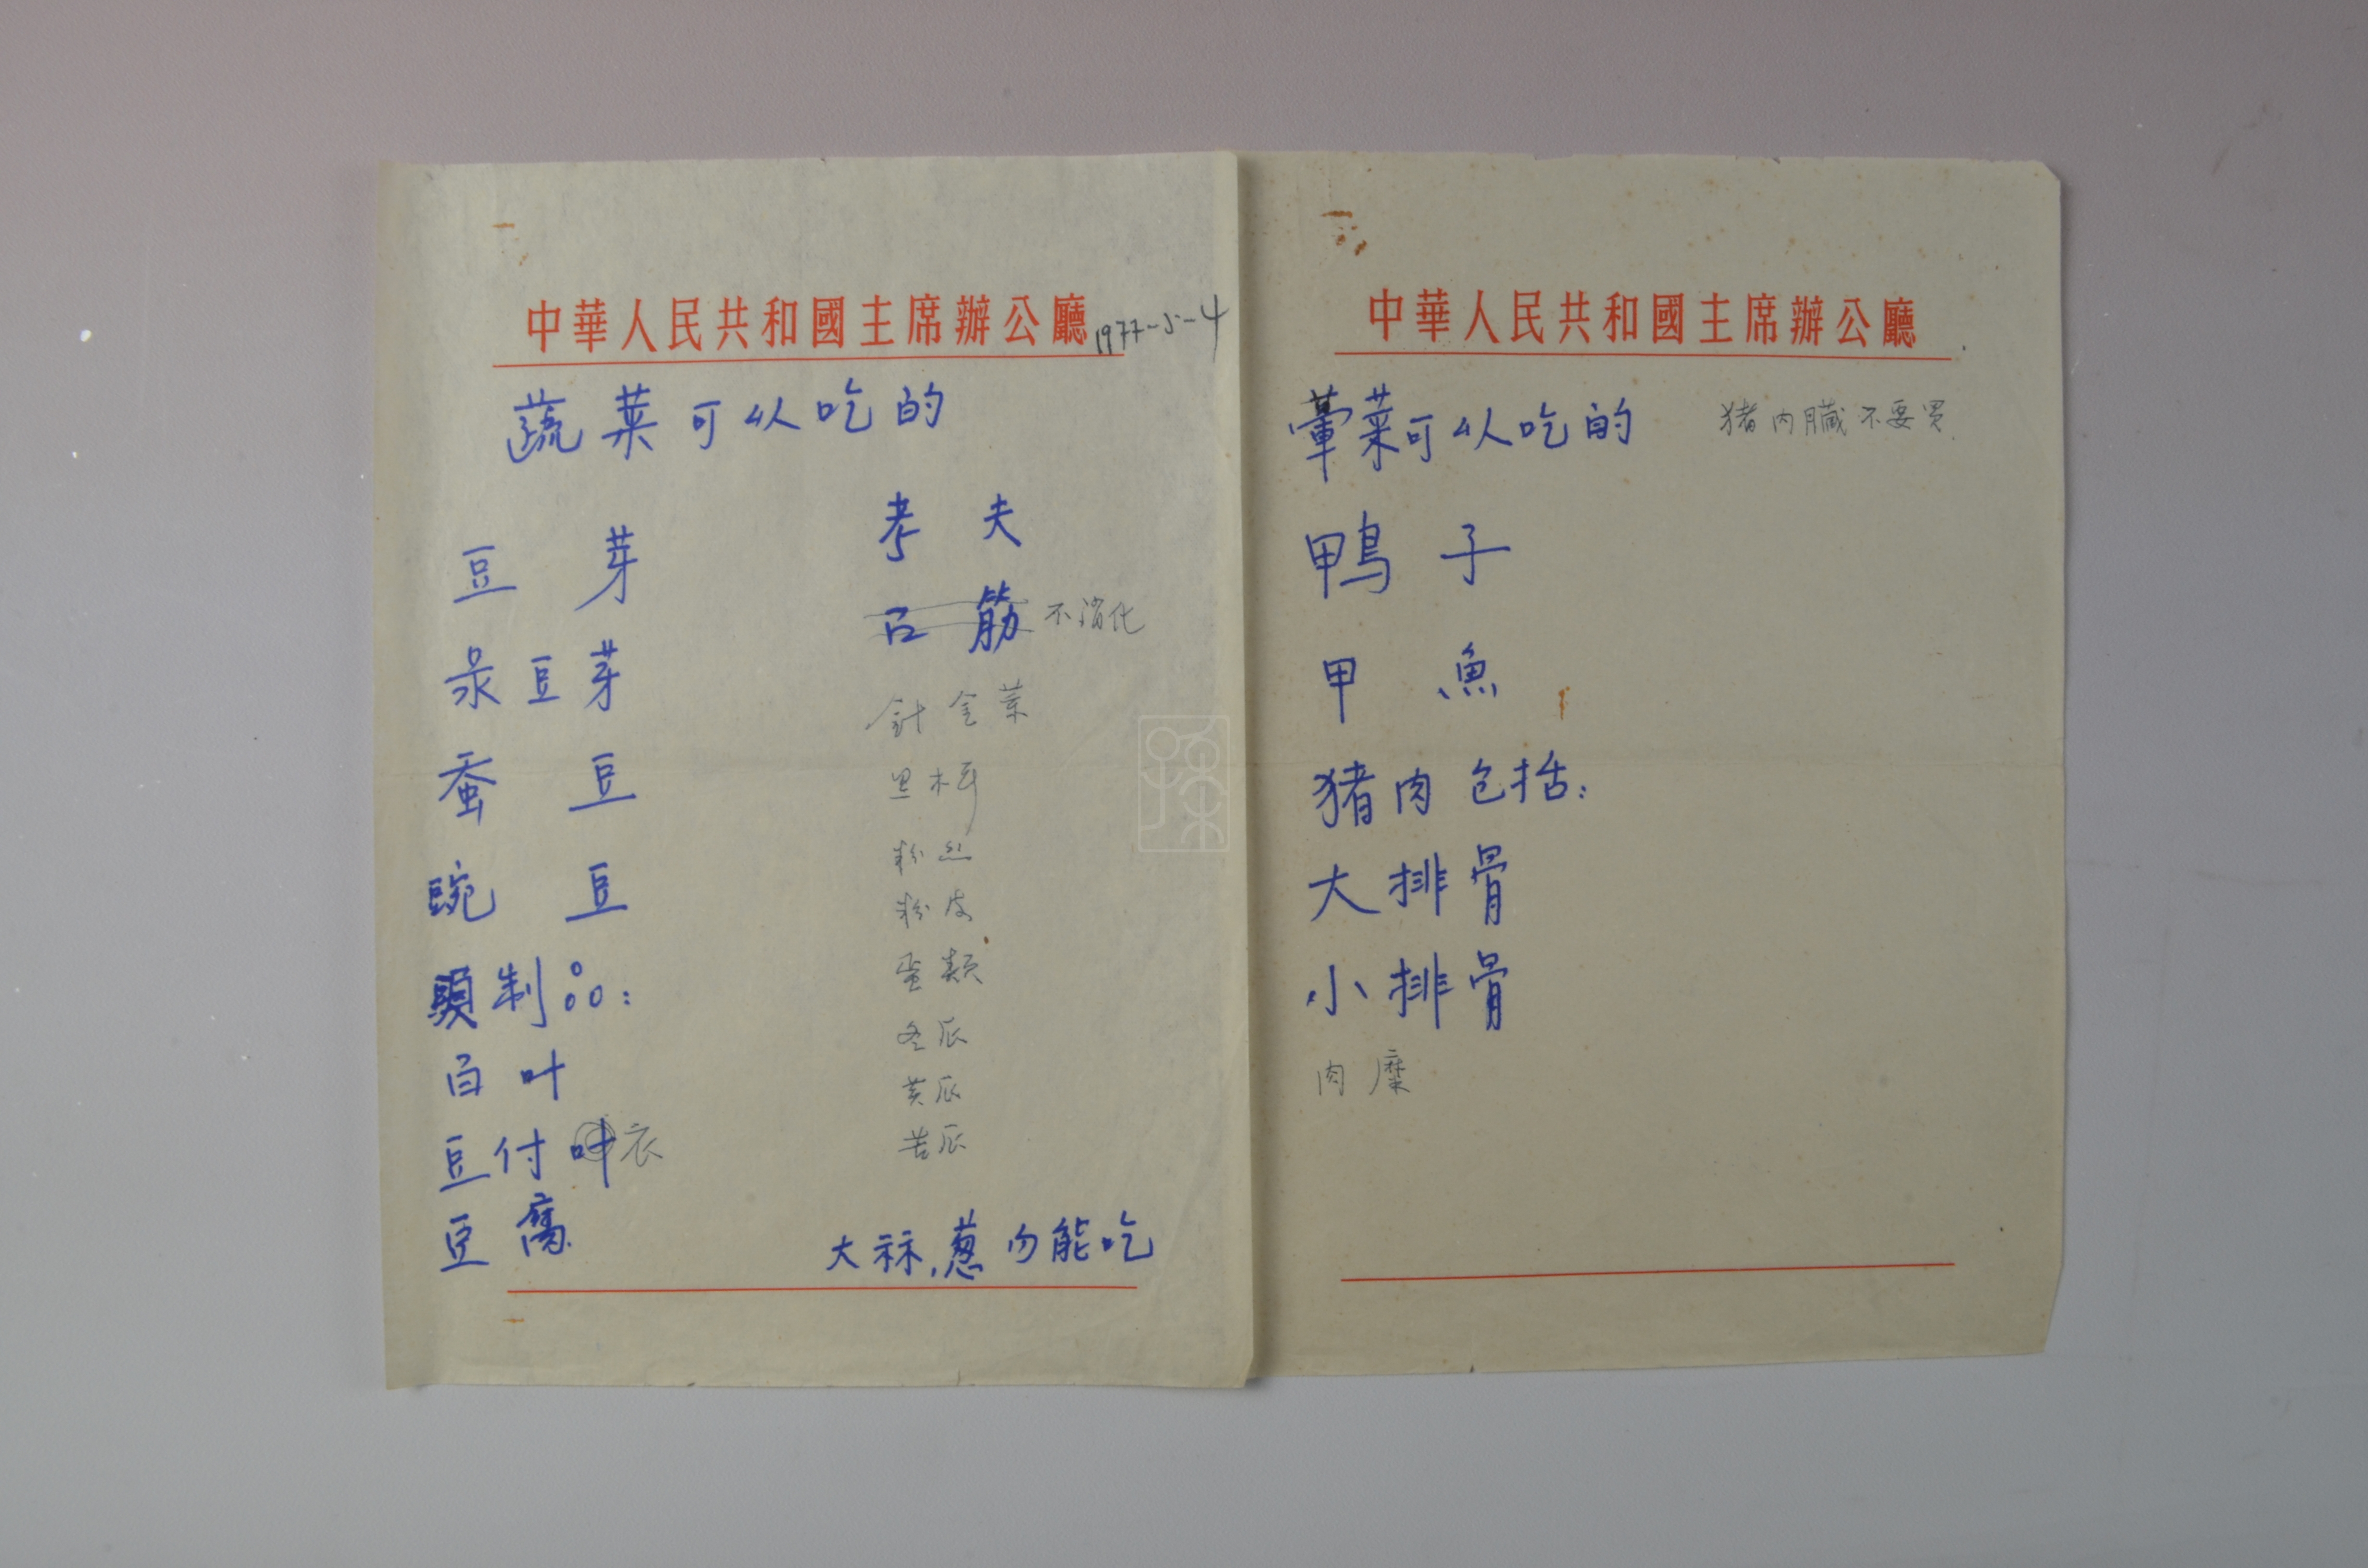 中華人民共和國主席辦公廳
1977-5-4
蔬菜可以吃的
豆芽
录豆芽
蚕豆
豌豆
頭制品：
百叶
豆付叶衣
豆腐
考夫
筋 不消化
針金菜
黑木耳
粉丝
粉皮
蛋類
冬瓜
黄瓜
苦瓜
大蒜，葱勿能吃
中華人民共和國主席辦公廳
葷菜可以吃的
猪内臟不要買
鴨子
甲魚
猪肉包括：
大排骨
小排骨
肉糜